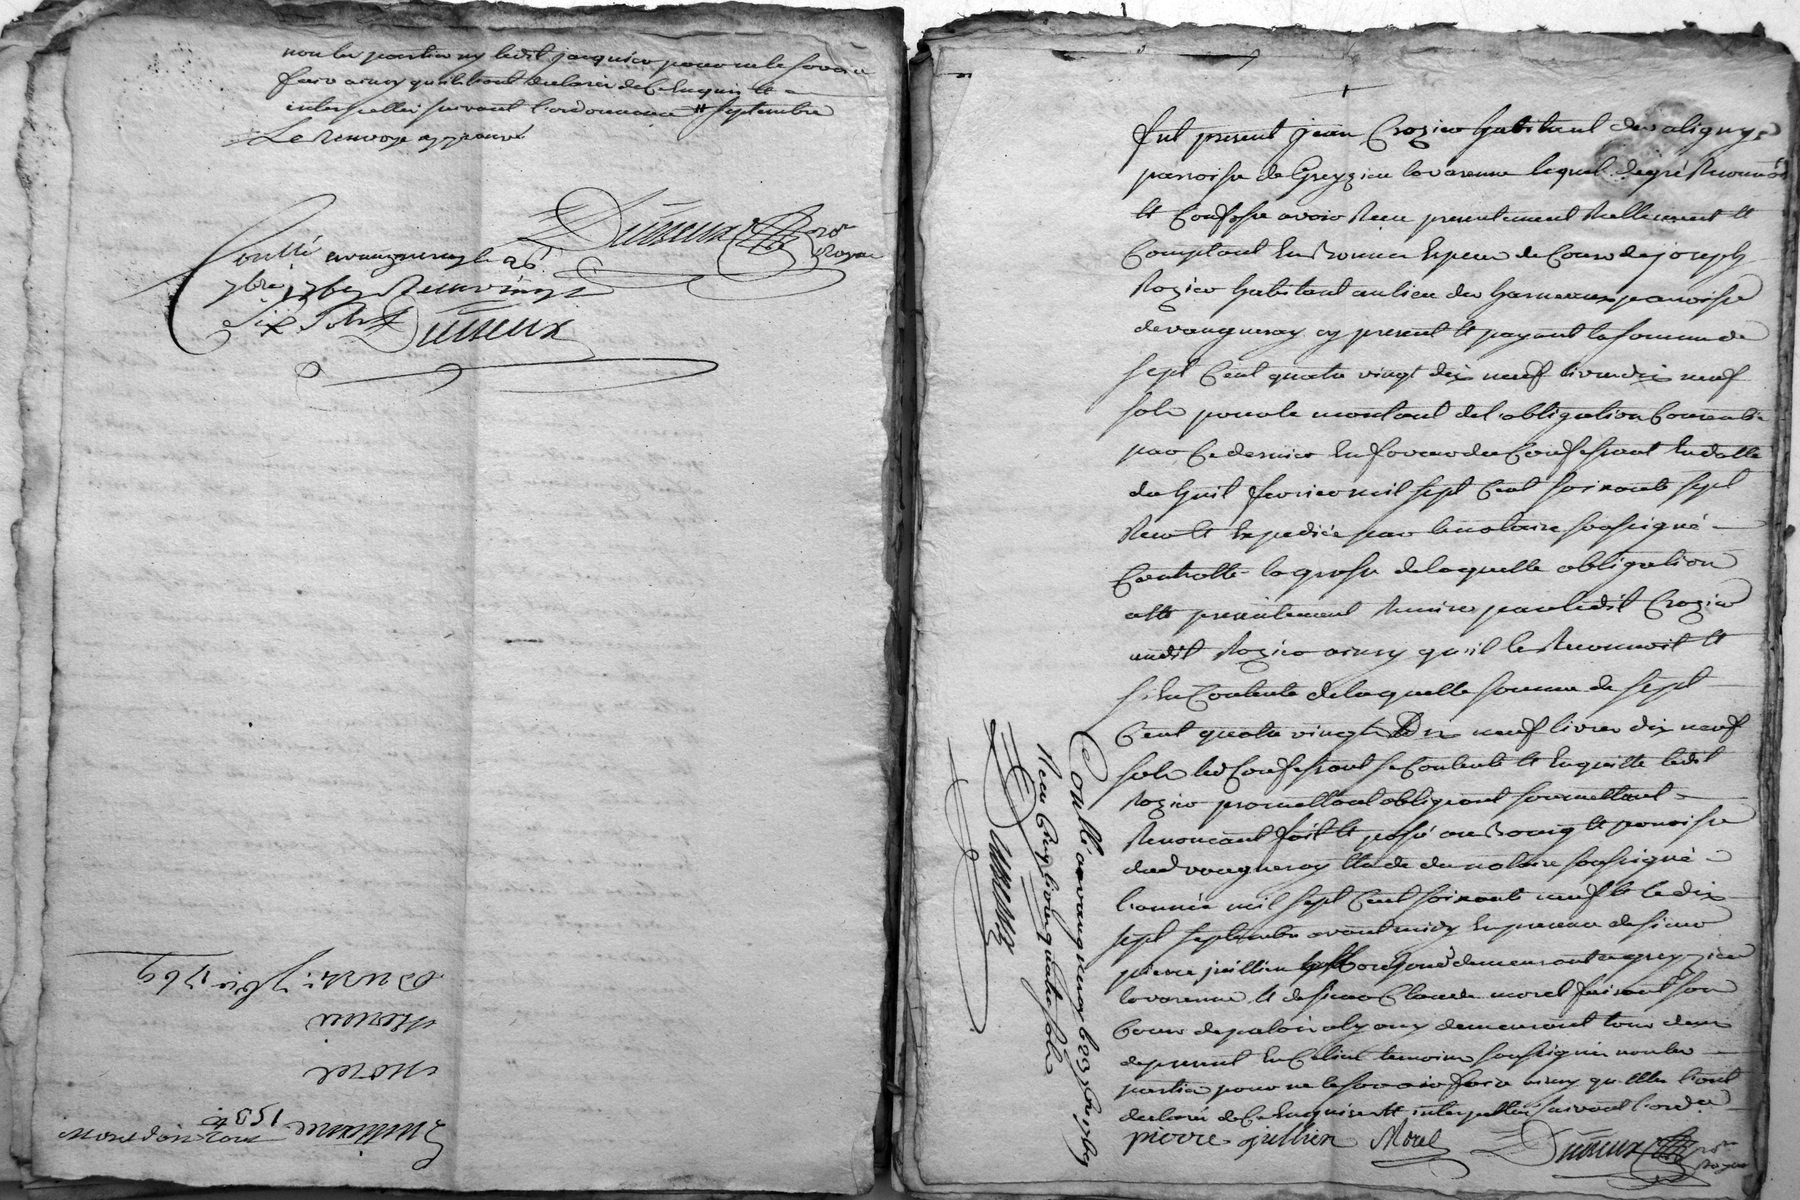 non les parties ny ledit jacquier pour ne le savoir
faire ainsy qu'ils l'ont declaré de ce enquis et
interpellés suivant l'ordonnance # septembre
Le Renvoye approuvé
Dumeux
Royal
Conllé a vaugneray le 26
7bre 1769 Reçu vingt
Six Sols Dumeux
Quittance
1534
Morel
Du 24 7bre 1769
fut present jean Crozier habitant de valigny
parroisse de Greyzieu lavarenne lequel de gré Reconnoit
et Confesse avoir Reçu presentement Reellement et
Comptant En Bonnes Especes de Cours de joseph
Rozier habitant au lieu du parroisse
de vaugneray cy present et payant la somme de
sept Cent quatre vingt dix neuf livres dix neuf
sols pour le montant de l'obligation Consentie
par Ce dernier En faveur du Confessant En datte
du huit fevrier mil sept Cent soixante sept
Reçu et Expediée par le notaire soussigné
Controllé la grosse de laquelle obligation
a ete presentement Remise par ledit Crozier
audit Rozier ainsy qu'il le Reconnoit et
s'en Contente de laquelle somme de sept
Cent quatre vingt Dix neuf livres dix neuf
sols led Confessant se Contente et En quitte ledit
Rozier promettant obligeant soumettant
Renonçant fait et passé au Bourg et parroisse
dud vaugneray Etude du notaire soussigné
l'année mil sept Cent soixante neuf et le dix
sept septembre avant midy En presence de sieur
pierre jullien demeurant a greyzieu
lavarenne et de sieur Claude morel faisant son
Cours de palais a lyon y demeurant tous deux
de present En Ce lieu temoins soussignés non les
parties pour ne le savoir faire ainsy qu'Elles l'ont
declaré de Ce Enquises et interpellées suivant l'ordce
pierre jullien Morel Dumeux
Royal
Conllé a vaugneray le 23 7bre 1769
Reçu Cinq livres quatre sols
Dumeux